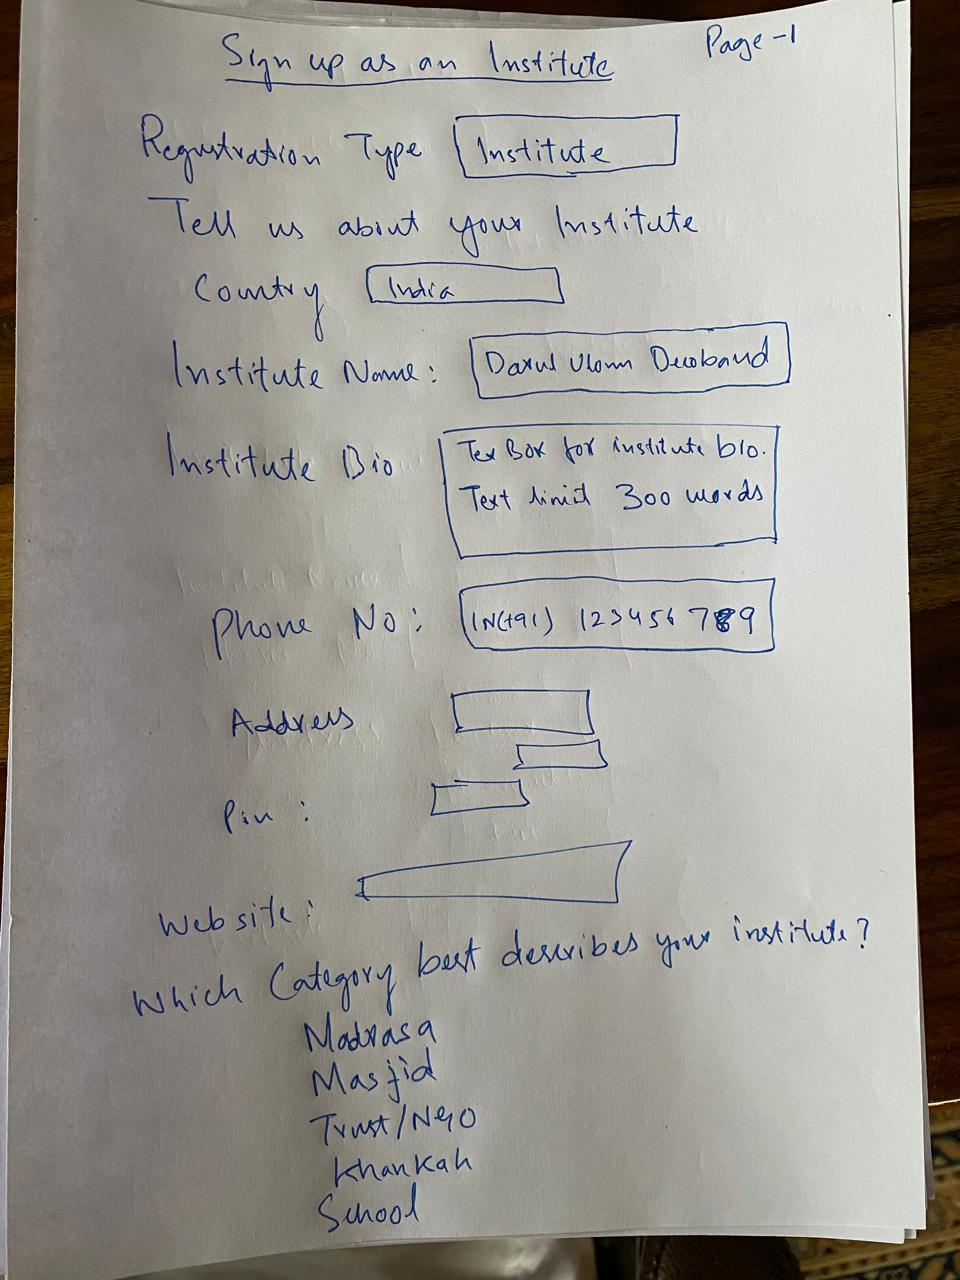 Page -1
Sign up as an Institute
Registration Type Institute
Tell us about your Institute
Country India
Institute Name: Darul Ulom Deoband
Institute Bio Tex Box for institute bio.
Text limit 300 words
Phone No: IN(+91) 123456789
Address
Pin :
Website:
Which Category best describes your institute?
Madrasa
Masjid
Trust/NGO
Khankah
School